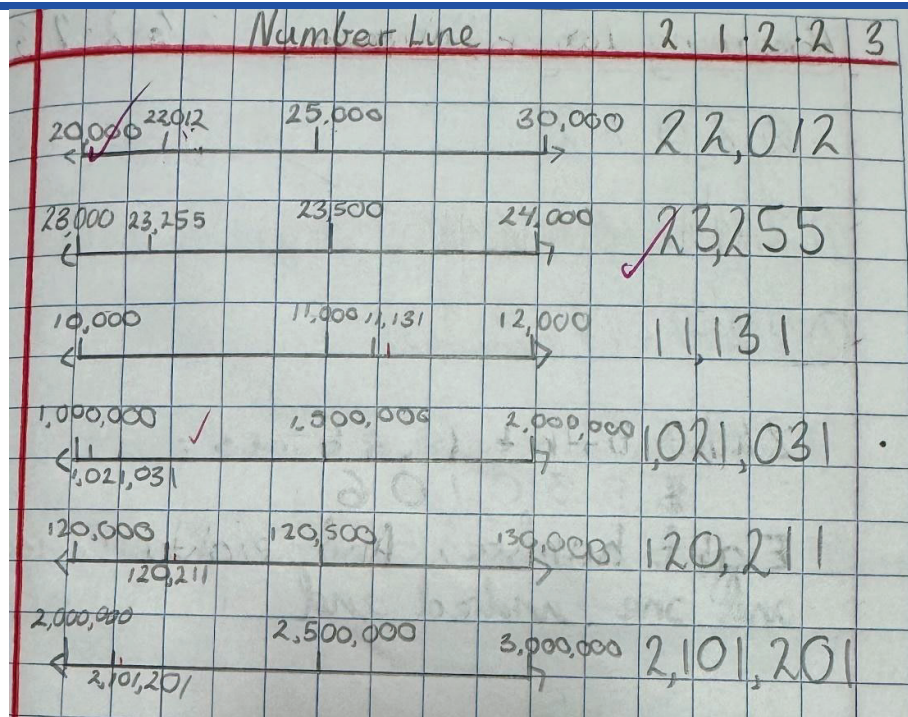 Number Line 2.1.2.2.3
20,000 22,012 25,000 30,000 22,012
23,000 23,255 23,500 24,000 23,255
10,000 11,000 11,131 12,000 11,131
1,000,000 1,500,000 2,000,000 1,021,031
1,021,031
120,000 120,500 130,000 120,211
120,211
2,000,000 2,500,000 3,000,000 2,101,201
2,101,201